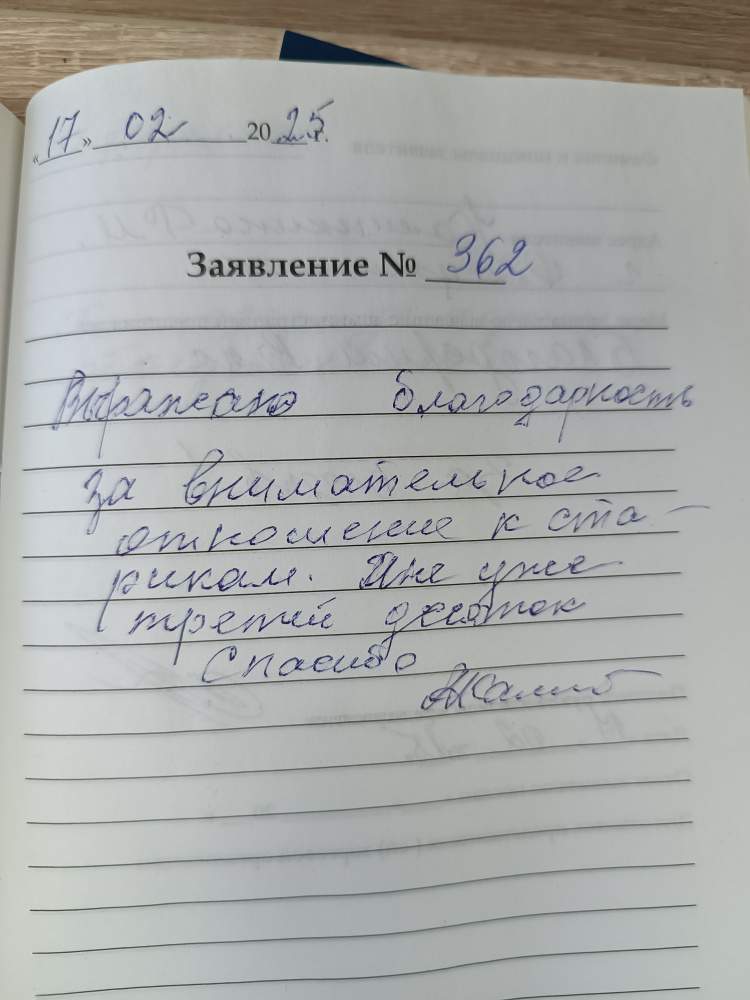 «17» 02 2025 г.
Заявление № 362
Выражаю благодарность
за внимательное
отношение к ста-
рикам. Мне уже
третий десяток
Спасибо